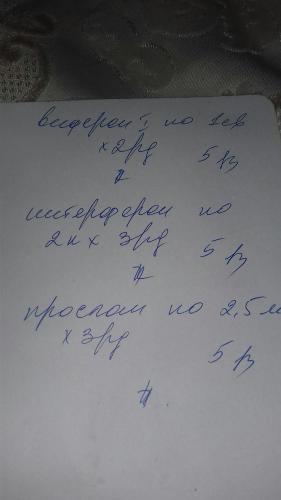 виферон 1 по 1св
х 2рд 5 дн
интерферон по
2к х 3рд 5 дн
проспан по 2,5м
х 3рд
5 дн